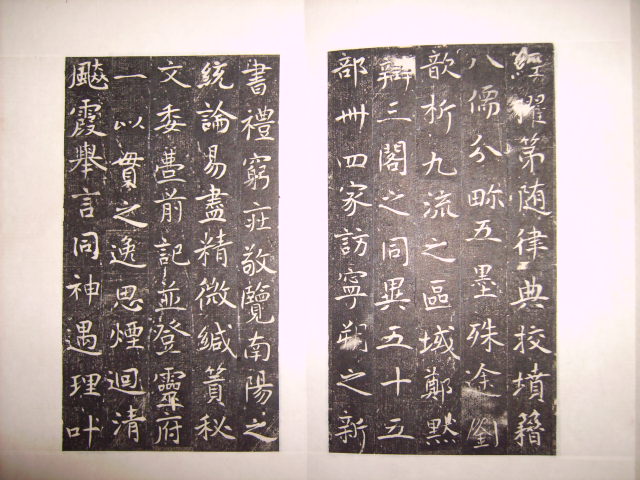 經擢第随律典校墳籍
八儒分畛五墨殊途劉
歆析九流之區域鄭默
辯三閣之同異五十五
部卌四家訪寧朔之新
書禮窮莊敬覽南陽之
統論易盡精微緘簣秘
文委疊前記並登靈府
一以貫之逸思煙迴清
飈霞舉言同神遇理叶